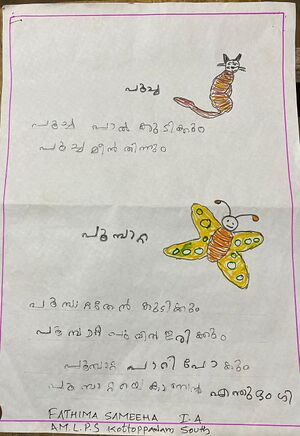 പൂച്ച
പൂച്ച പാൽ കുടിക്കും
പൂച്ച മീൻ തിന്നും
പൂമ്പാറ്റ
പൂമ്പാറ്റ തേൻ കുടിക്കും
പൂമ്പാറ്റ പൂവിൽ ഇരിക്കും
പൂമ്പാറ്റ പാറി പോകും
പൂമ്പാറ്റയെ കാണാൻ എന്തു ഭംഗി
FATHIMA SAMEEHA I.A
A.M.L.P.S Kottoppadam South